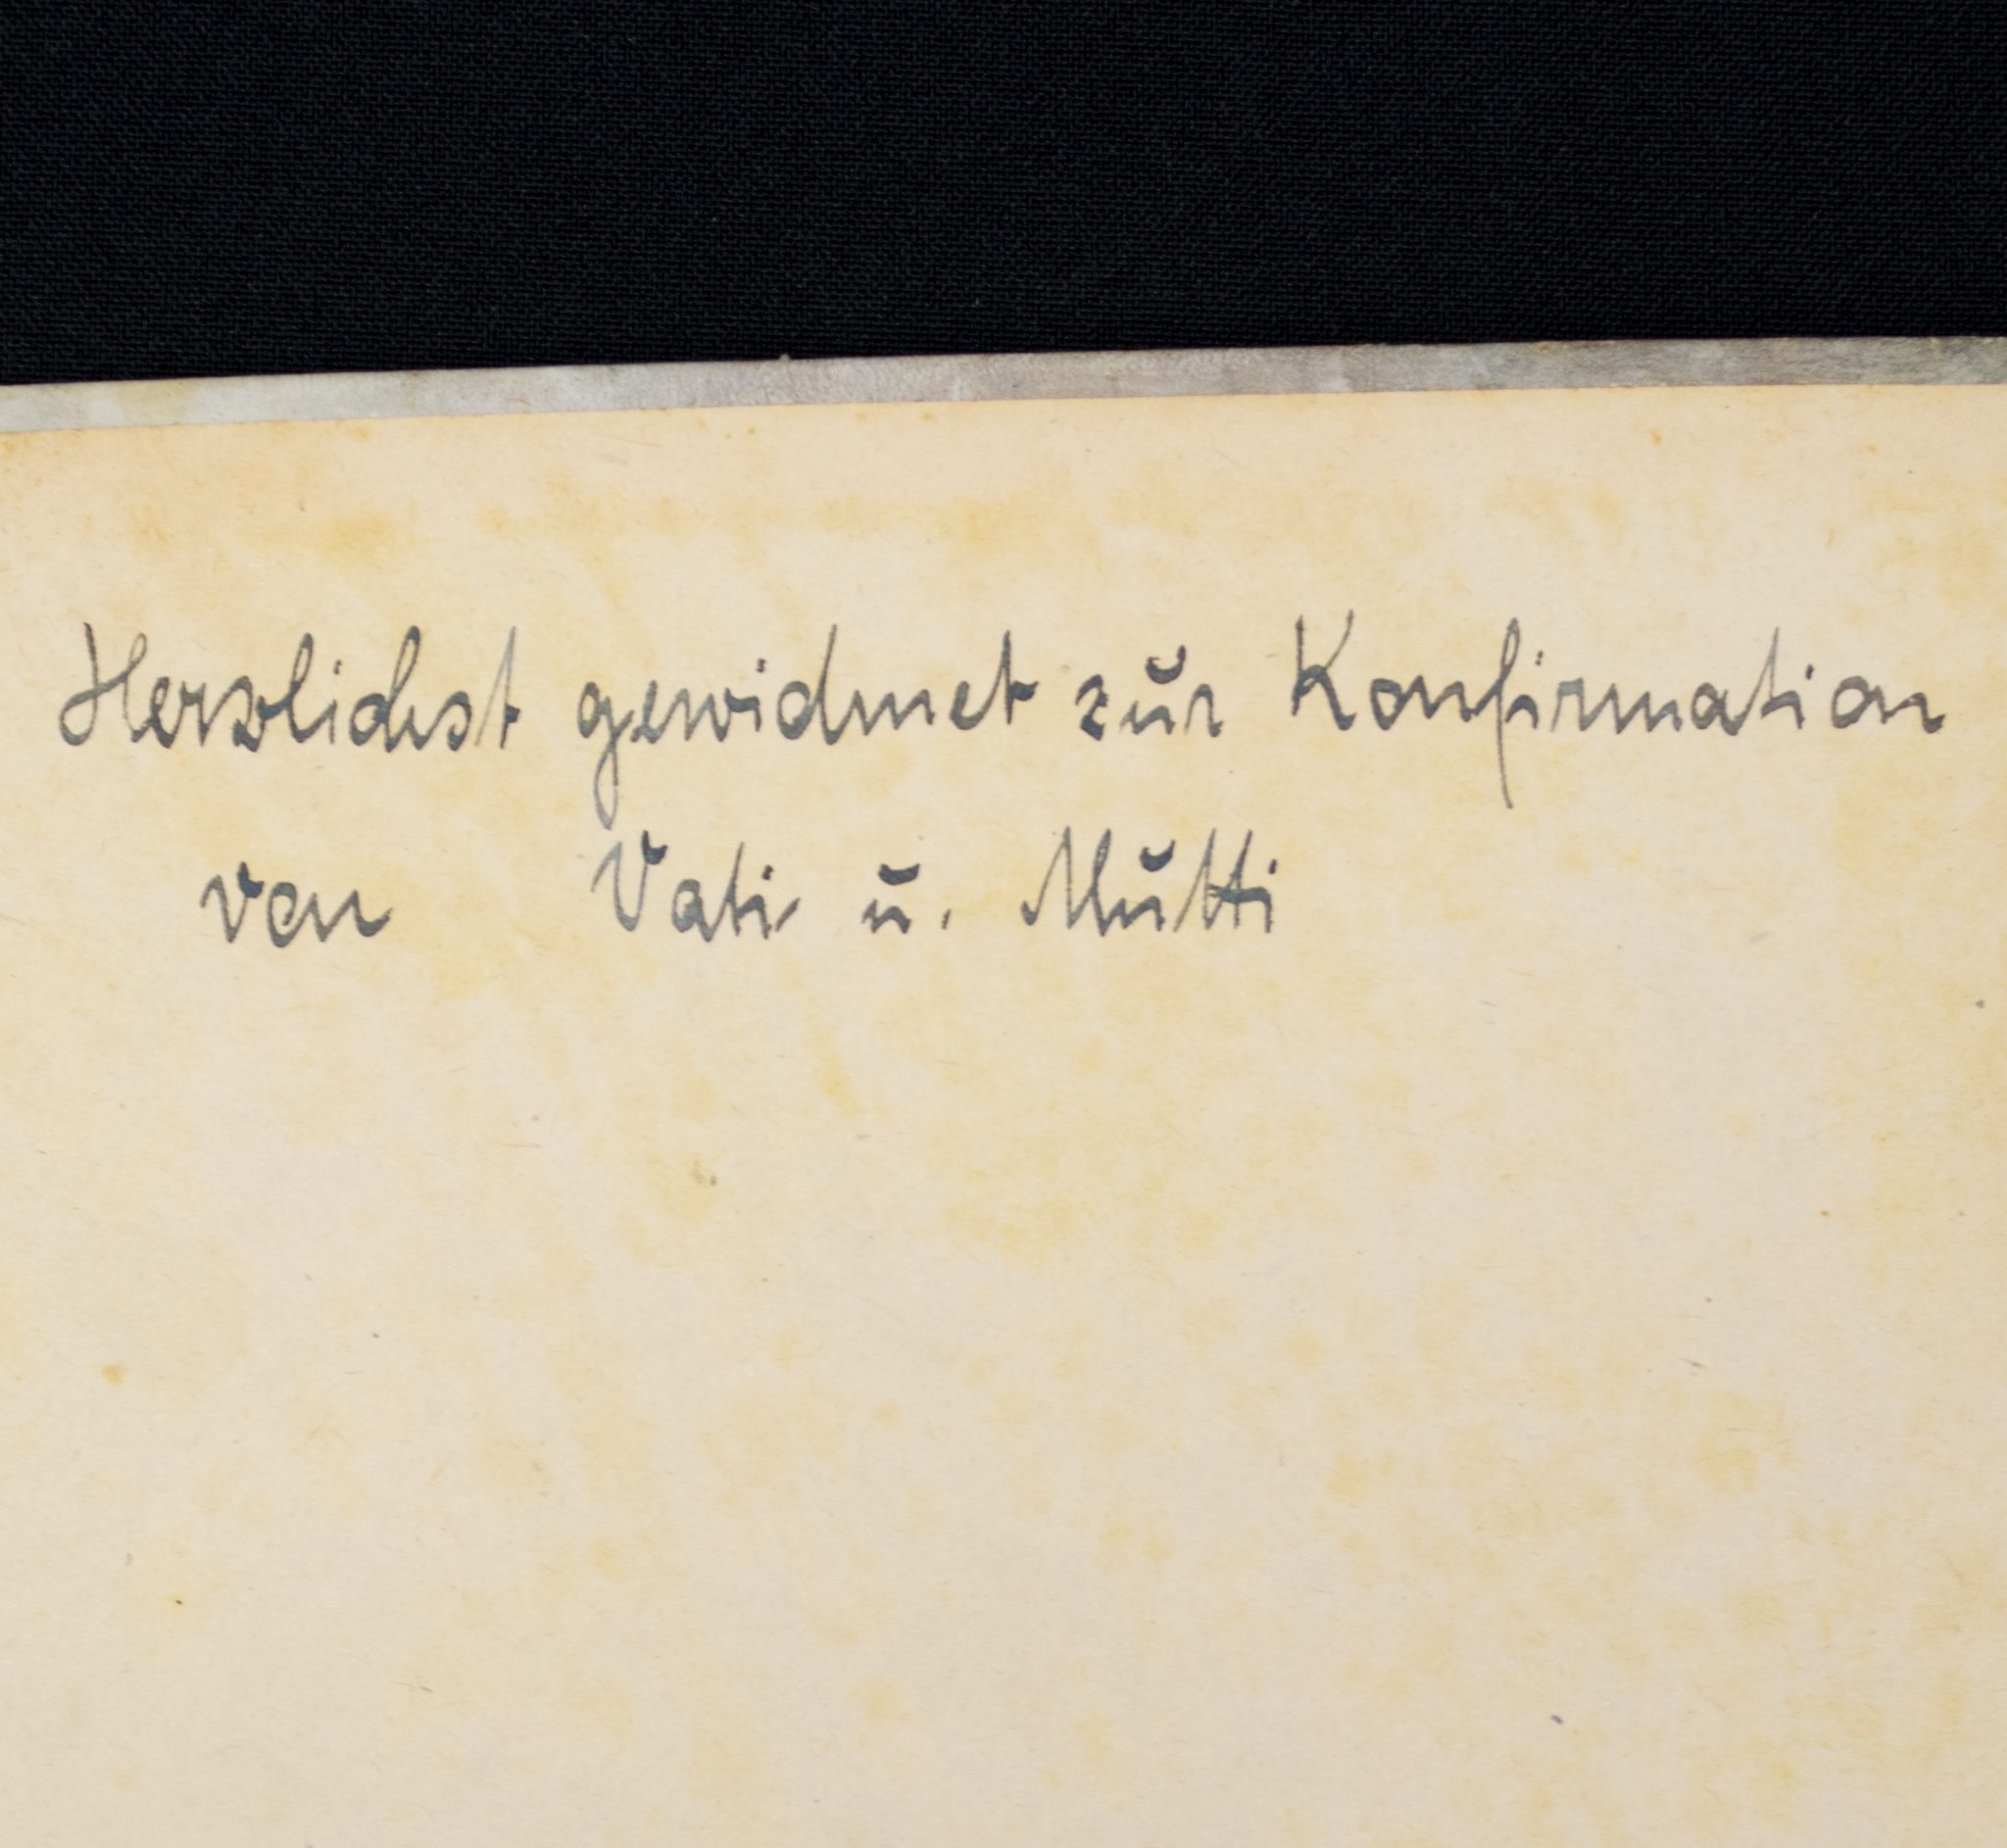 Herzlichst gewidmet zur Konfirmation
von Vati u. Mutti